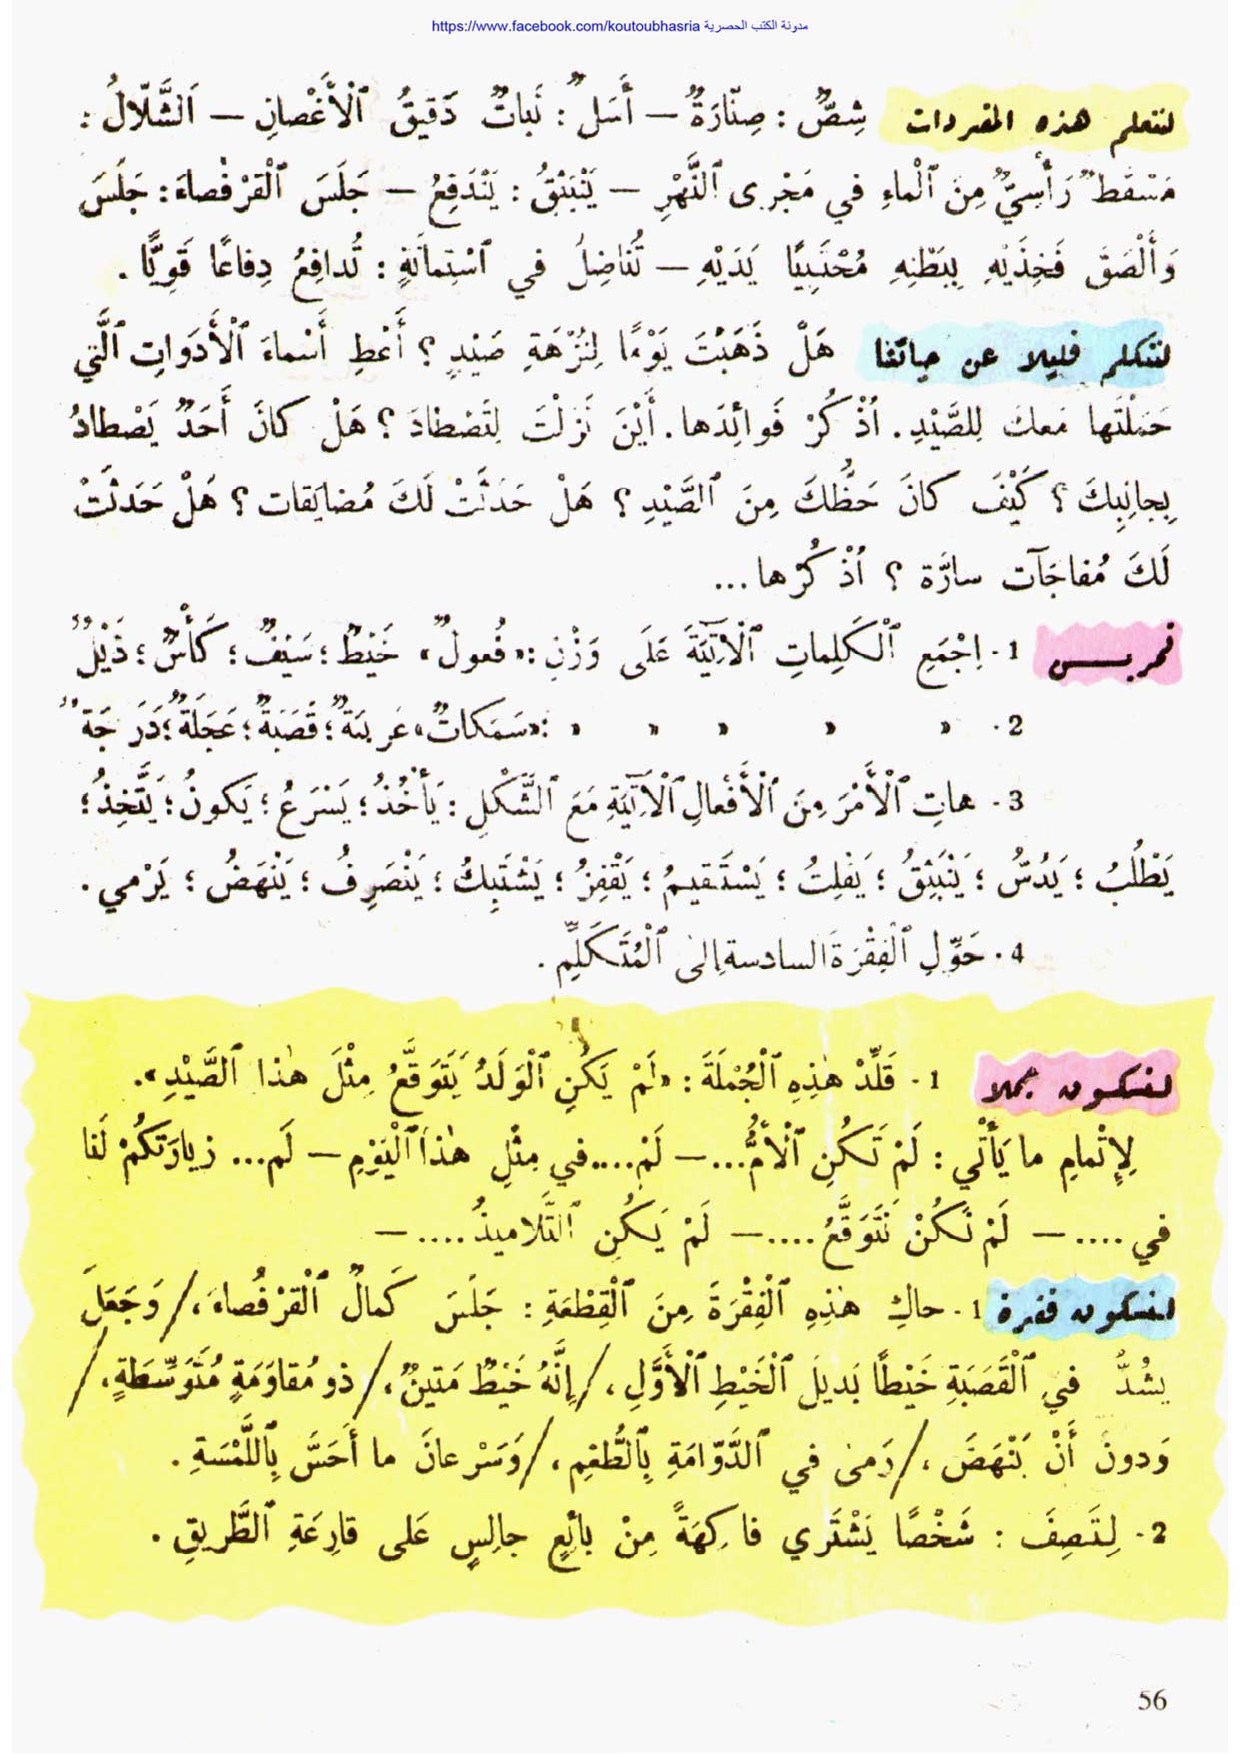 مدونة الكتب الحصرية https://www.facebook.com/koutoubhasria
لنتعلم هذه المفردات شِصٌّ : صِنّارَةٌ — أَسَلٌ : نَباتٌ دَقيقُ ٱلْأَغْصانِ — اَلشَّلّالُ :
مَسْقَطٌ رَأْسِيٌّ مِنَ ٱلْماءِ في مَجْرى ٱلنَّهْرِ — يَنْبَثِقُ : يَنْدَفِعُ — جَلَسَ ٱلْقُرْفُصاءَ : جَلَسَ
وَأَلْصَقَ فَخِذَيْهِ بِبَطْنِهِ مُحْتَبِيًا يَدَيْهِ — تُناضِلُ في ٱسْتِماتَةٍ : تُدافِعُ دِفاعًا قَوِيًّا .
لنتكلم قليلا عن حياتنا هَلْ ذَهَبْتَ يَوْمًا لِنُزْهَةِ صَيْدٍ ؟ أَعْطِ أَسْماءَ ٱلْأَدَواتِ ٱلَّتي
حَمَلْتَها مَعكَ لِلصَّيْدِ . اُذْكُرْ فَوائِدَها . أَيْنَ نَزَلْتَ لِتَصْطادَ ؟ هَلْ كانَ أَحَدٌ يَصْطادُ
بِجانِبِكَ ؟ كَيْفَ كانَ حَظُّكَ مِنَ ٱلصَّيْدِ ؟ هَلْ حَدَثَتْ لَكَ مُضايَقات ؟ هَلْ حَدَثَتْ
لَكَ مُفاجَآت سارَّة ؟ اُذْكُرْها ...
تمريـــن 1 - اِجْمَعِ ٱلْكَلِماتِ ٱلْآتِيَةَ عَلَى وَزْنِ : «فُعولٌ» خَيْطٌ ؛ سَيْفٌ ؛ كَأْسٌ ؛ ذَيْلٌ
2 - » » » » » : «سَمَكاتٌ» عَرَبَةٌ ؛ قَصَبَةٌ ؛ عَجَلَةٌ ؛ دَرَجَةٌ
3 - هاتِ ٱلْأَمْرَ مِنَ ٱلْأَفْعالِ ٱلْآتِيَةِ مَعَ ٱلشَّكْلِ : يَأْخُذُ ؛ يَسْرَعُ ؛ يَكونُ ؛ يَتَّخِذُ ؛
يَطْلُبُ ؛ يَدُسُّ ؛ يَنْبَثِقُ ؛ يَفْلِتُ ؛ يَسْتَقيمُ ؛ يَقْفِزُ ؛ يَشْتَبِكُ ؛ يَنْصَرِفُ ؛ يَنْهَضُ ؛ يَرْمي .
4 - حَوِّلِ ٱلْفِقْرَةَ السادسة إِلى ٱلْمُتَكَلِّمِ .
لنكون جملا 1 - قَلِّدْ هٰذِهِ ٱلْجُمْلَةَ : «لَمْ يَكُنِ ٱلْوَلَدُ يَتَوَقَّعُ مِثْلَ هٰذا ٱلصَّيْدِ».
لِإِتْمامِ ما يَأْتي : لَمْ تَكُنِ ٱلْأُمُّ... — لَمْ.... في مِثْلِ هٰذا ٱلْيَوْمِ — لَم... زِيارَتَكُمْ لَنا
في .... — لَمْ نَكُنْ نَتَوَقَّعُ .... — لَمْ يَكُنِ ٱلتَّلاميذُ .... —
لنكون فقرة 1 - حاكِ هٰذِهِ ٱلْفِقْرَةَ مِنَ ٱلْقِطْعَةِ : جَلَسَ كَمالٌ ٱلْقُرْفُصاءَ ،/ وَجَعَلَ
يشُدُّ في ٱلْقَصَبَةِ خَيْطًا بَديلَ ٱلْخَيْطِ ٱلْأَوَّلِ ،/ إِنَّهُ خَيْطٌ مَتينٌ ،/ ذو مُقاوَمَةٍ مُتَوَسِّطَةٍ ،/
وَدونَ أَنْ يَنْهَضَ ،/ رَمى في ٱلدَّوّامَةِ بِٱلطُّعْمِ ،/ وَسَرْعانَ ما أَحَسَّ بِٱللَّمْسَةِ .
2 - لِتَصِفَ : شَخْصًا يَشْتَري فاكِهَةً مِنْ بائِعٍ جالِسٍ عَلى قارِعَةِ ٱلطَّريقِ .
56